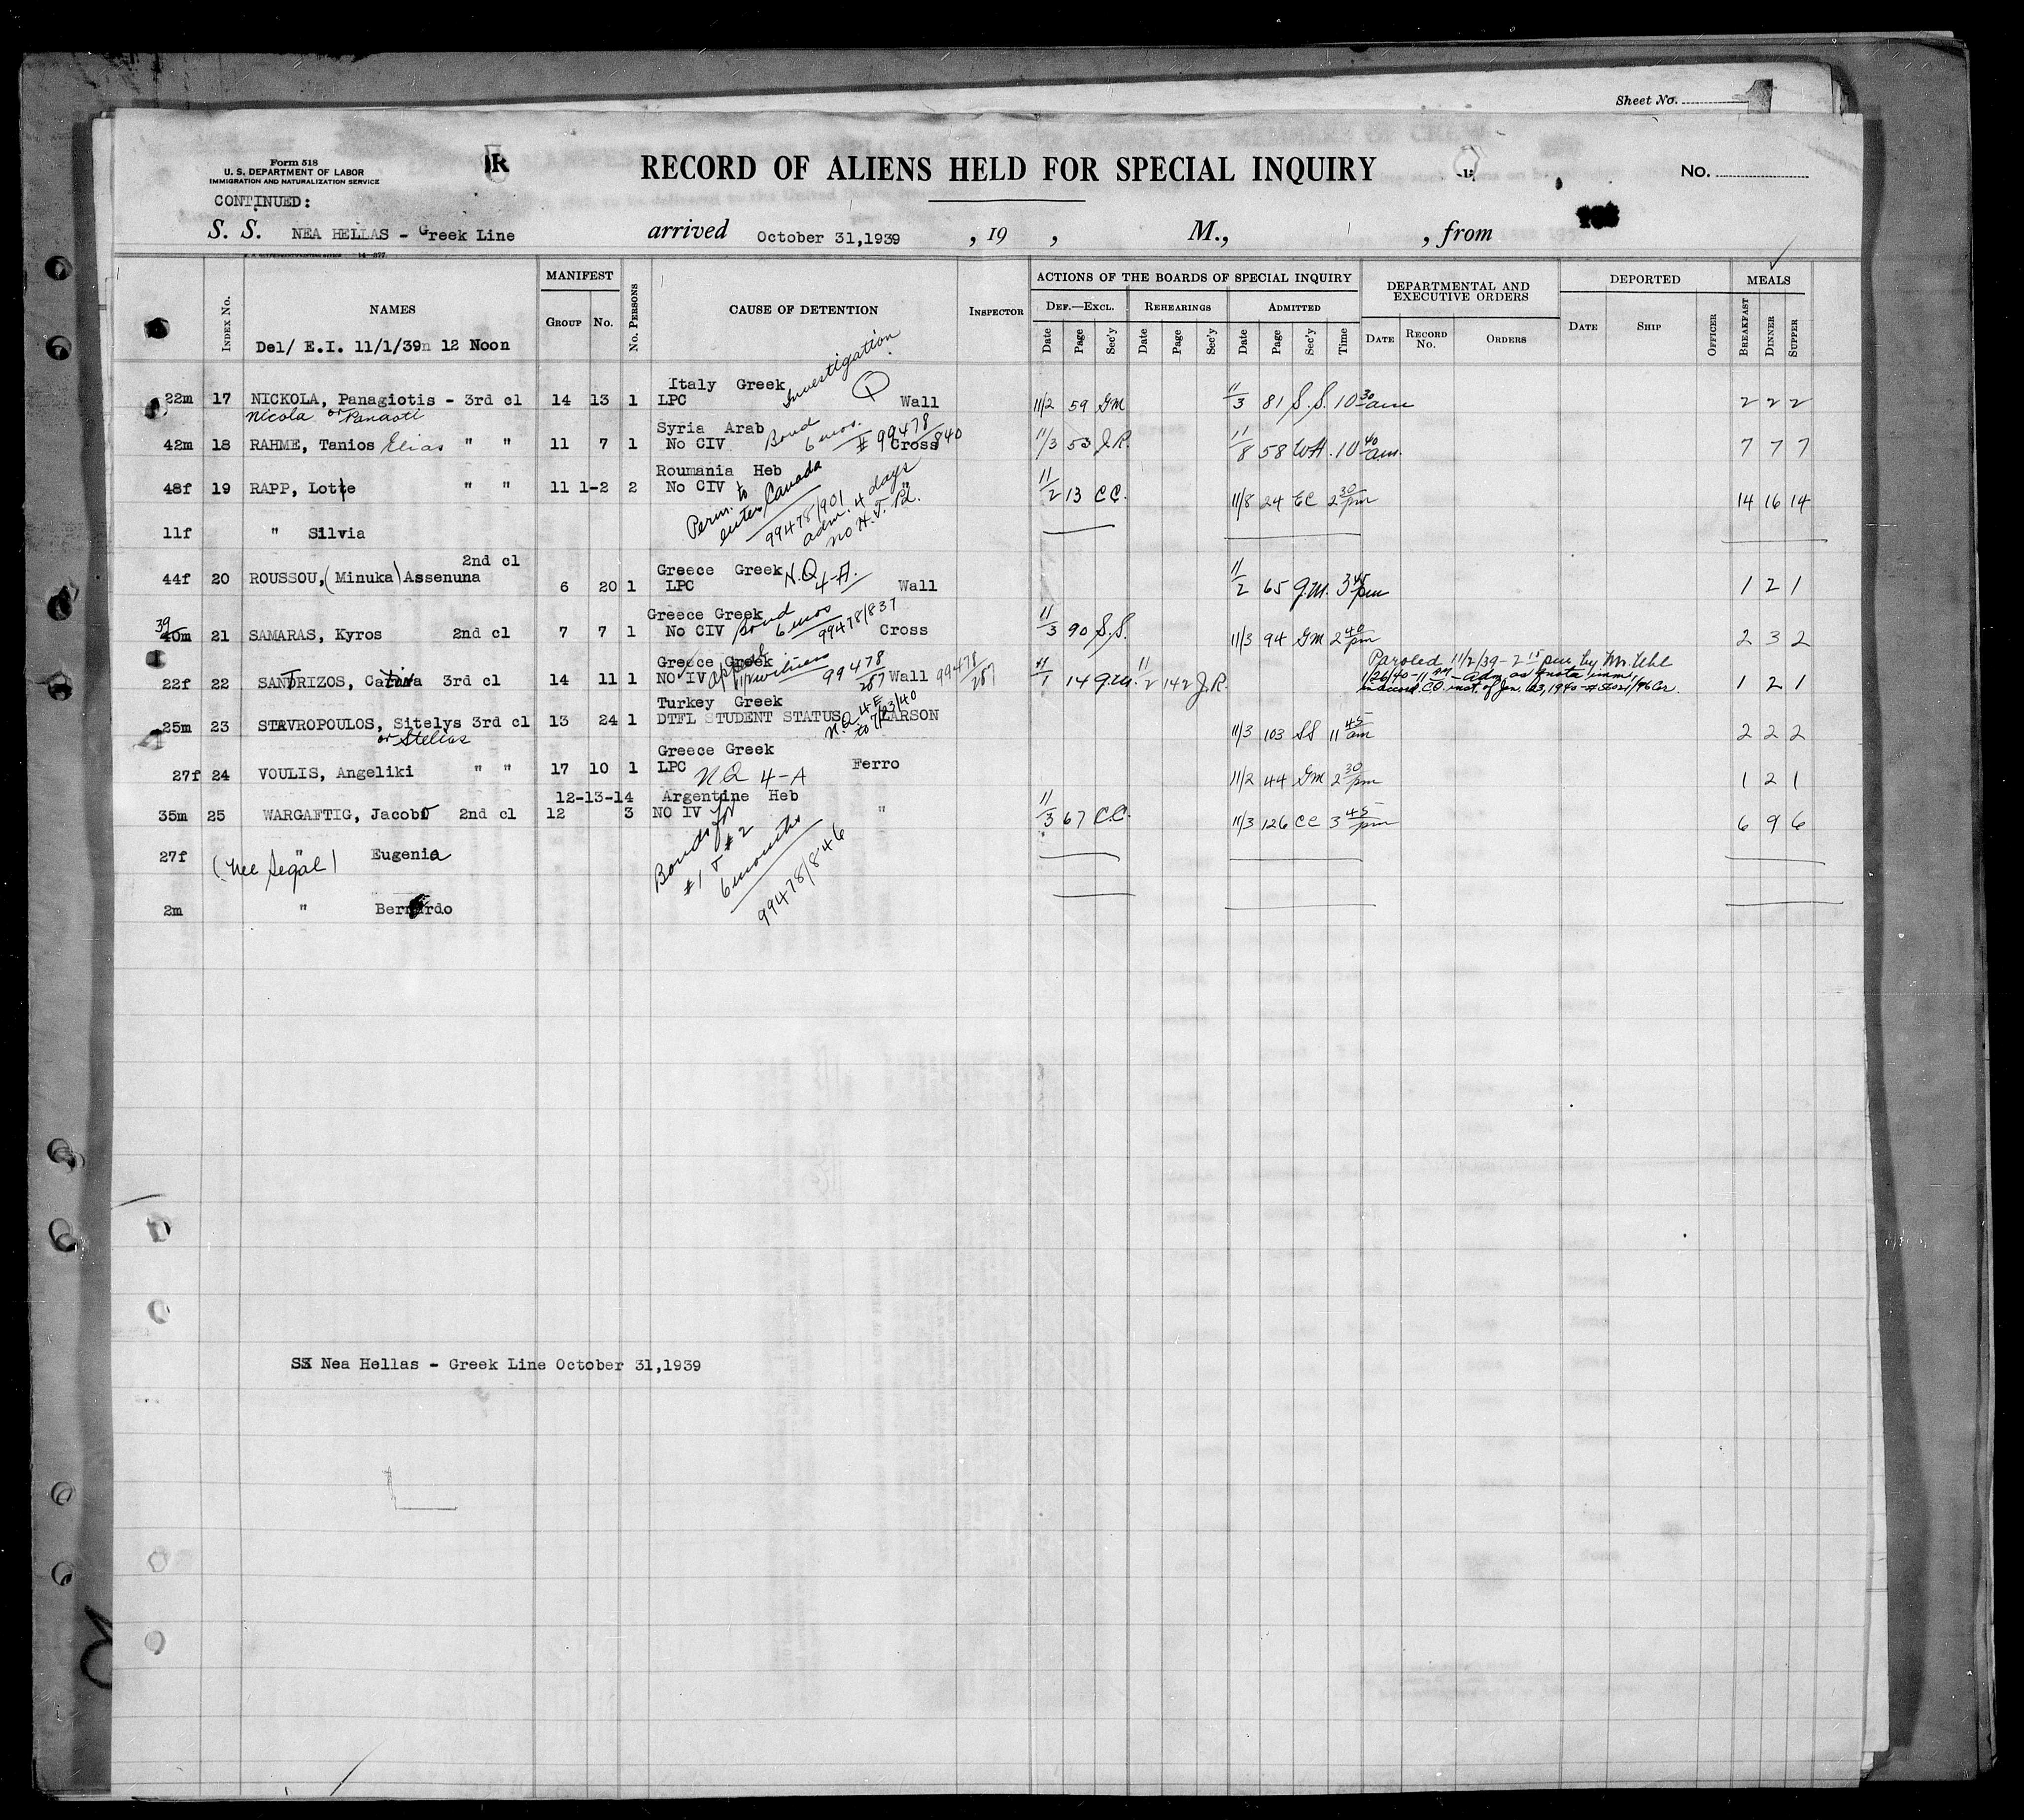 Sheet No.
Form 518
U. S. DEPARTMENT OF LABOR
IMMIGRATION AND NATURALIZATION SERVICE
R
RECORD OF ALIENS HELD FOR SPECIAL INQUIRY
No.
CONTINUED:
S. S. NEA HELLAS - Greek Line arrived October 31,1939 , 19 , M., , from
Index No.
NAMES
MANIFEST
Group No.
No. Persons
CAUSE OF DETENTION
Inspector
ACTIONS OF THE BOARDS OF SPECIAL INQUIRY
Def.—Excl. Rehearings Admitted
Date Page Sec'y Date Page Sec'y Date Page Sec'y Time
DEPARTMENTAL AND EXECUTIVE ORDERS
Date Record No. Orders
DEPORTED
Date Ship Officer
MEALS
Breakfast Dinner Supper
Del/ E.I. 11/1/39 12 Noon
Italy Greek Investigation
22m 17 NICKOLA, Panagiotis - 3rd cl 14 13 1 LPC Q Wall 11/2 59 GM 11/3 81 S.S. 10 30 am 2 2 2
Nicola or Panaoti
Syria Arab Bond 6 mos. # 99478/840
42m 18 RAHME, Tanios Elias " " 11 7 1 No CIV Cross 11/3 53 J.R. 11/8 58 WH. 10 40 am. 7 7 7
Roumania Heb
48f 19 RAPP, Lotte " " 11 1-2 2 No CIV " 11/2 13 CC. 11/8 24 EC 2 30 pm 14 16 14
Perm. to enter Canada
99478/901
adm. 4 days
no H.T. Pd.
11f " Silvia
2nd cl
Greece Greek N.Q. 4-A.
44f 20 ROUSSOU, (Minuka) Assenuna 6 20 1 LPC Wall 11/2 65 G.M. 3 45 pm 1 2 1
Greece Greek Bond 6 mos 99478/837
39
40m 21 SAMARAS, Kyros 2nd cl 7 7 1 No CIV Cross 11/3 90 S.S. 11/3 94 GM 2 40 pm 2 3 2
Greece Greek
22f 22 SANTRIZOS, Catina 3rd cl 14 11 1 NO IV 99478/287 Wall 99478/287 11/1 14 G.M. 11/2 142 J.R. 1 2 1
Paroled 11/2/39 - 2 15 pm by Mr. Uhl
Turkey Greek N.Q. 4-E to 7/23/40
25m 23 STAVROPOULOS, Sitelys 3rd cl 13 24 1 DTFL STUDENT STATUS LARSON 11/3 103 SS 11 45 am 2 2 2
or Stelios
Greece Greek
27f 24 VOULIS, Angeliki " " 17 10 1 LPC N.Q. 4-A Ferro 11/2 44 GM 2 30 pm 1 2 1
12-13-14 Argentine Heb
35m 25 WARGAFTIG, Jacobo 2nd cl 12 3 NO IV " 11/3 67 C.C. 11/3 126 CC 3 45 pm 6 9 6
Bonds for #1 & #2
6 months
99478/846
27f " Eugenia
(nee Segal)
2m " Bernardo
SS Nea Hellas - Greek Line October 31,1939